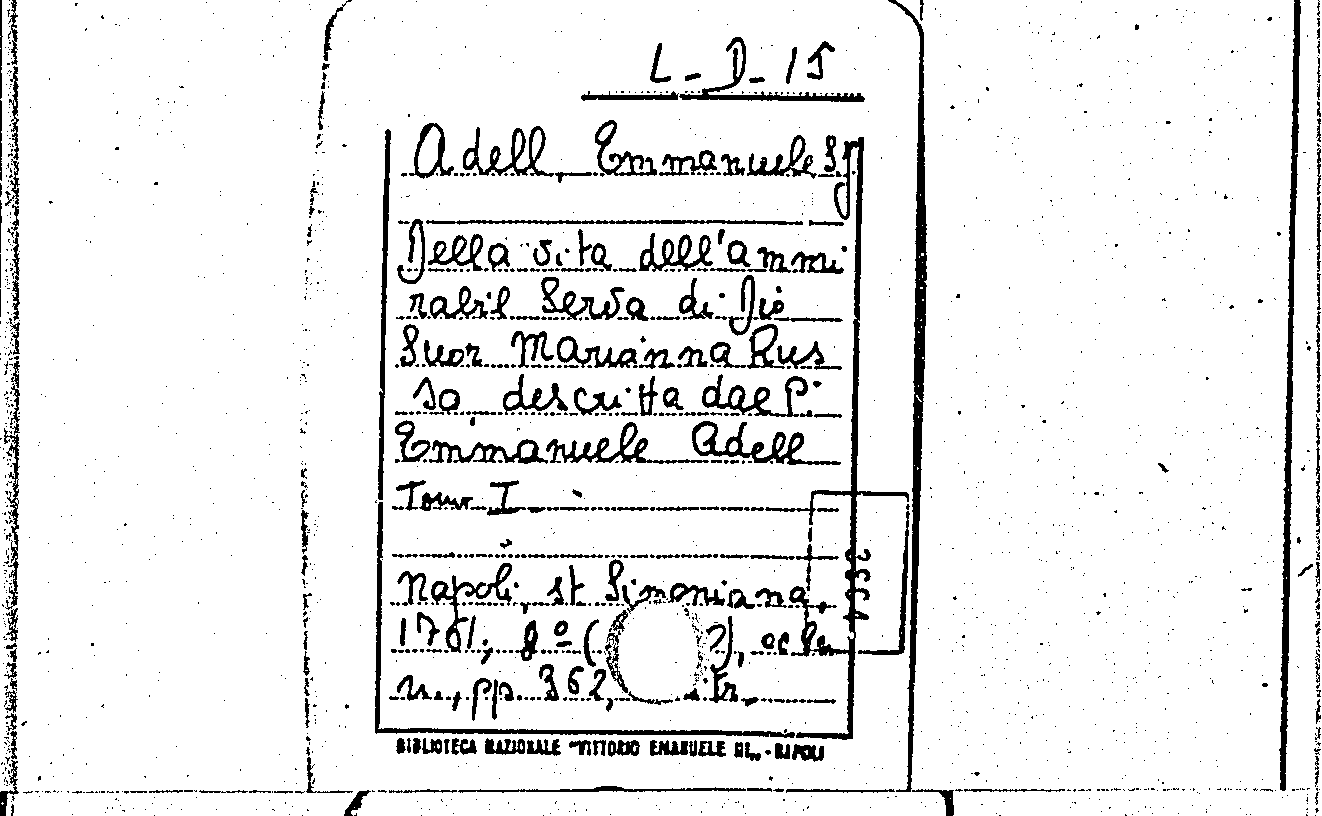 L-D-15
Adell, Emmanuele S.J
Della vita dell'ammi
rabil Serva di Dio
Suor Marianna Rus
so descritta dal P.
Emmanuele Adell
Tomo I
Napoli, st Simoniana,
1761; 8º (
pp. 362,
BIBLIOTECA NAZIONALE "VITTORIO EMANUELE III" - NAPOLI